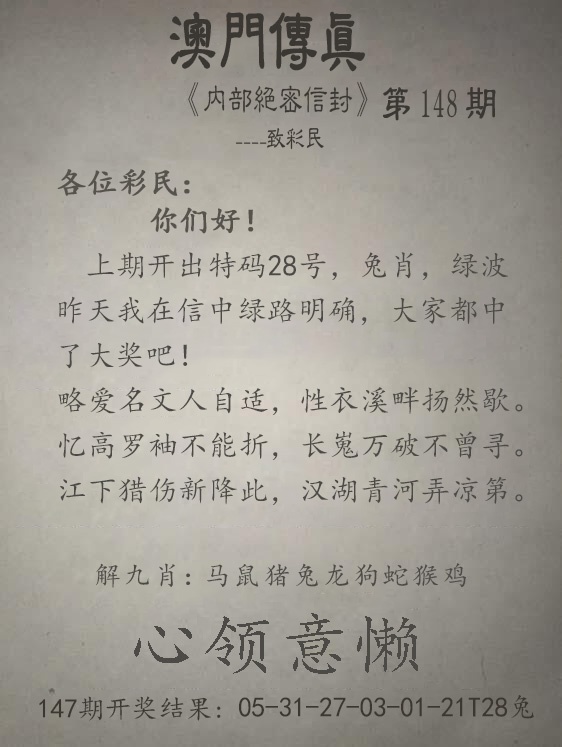 澳門傳真
《内部絕密信封》第148期
----致彩民
各位彩民：
你们好！
上期开出特码28号，兔肖，绿波
昨天我在信中绿路明确，大家都中
了大奖吧！
略爱名文人自适，性衣溪畔扬然歇。
忆高罗袖不能折，长嵬万破不曾寻。
江下猎伤新降此，汉湖青河弄凉第。
解九肖：马鼠猪兔龙狗蛇猴鸡
心领意懒
147期开奖结果：05-31-27-03-01-21T28兔